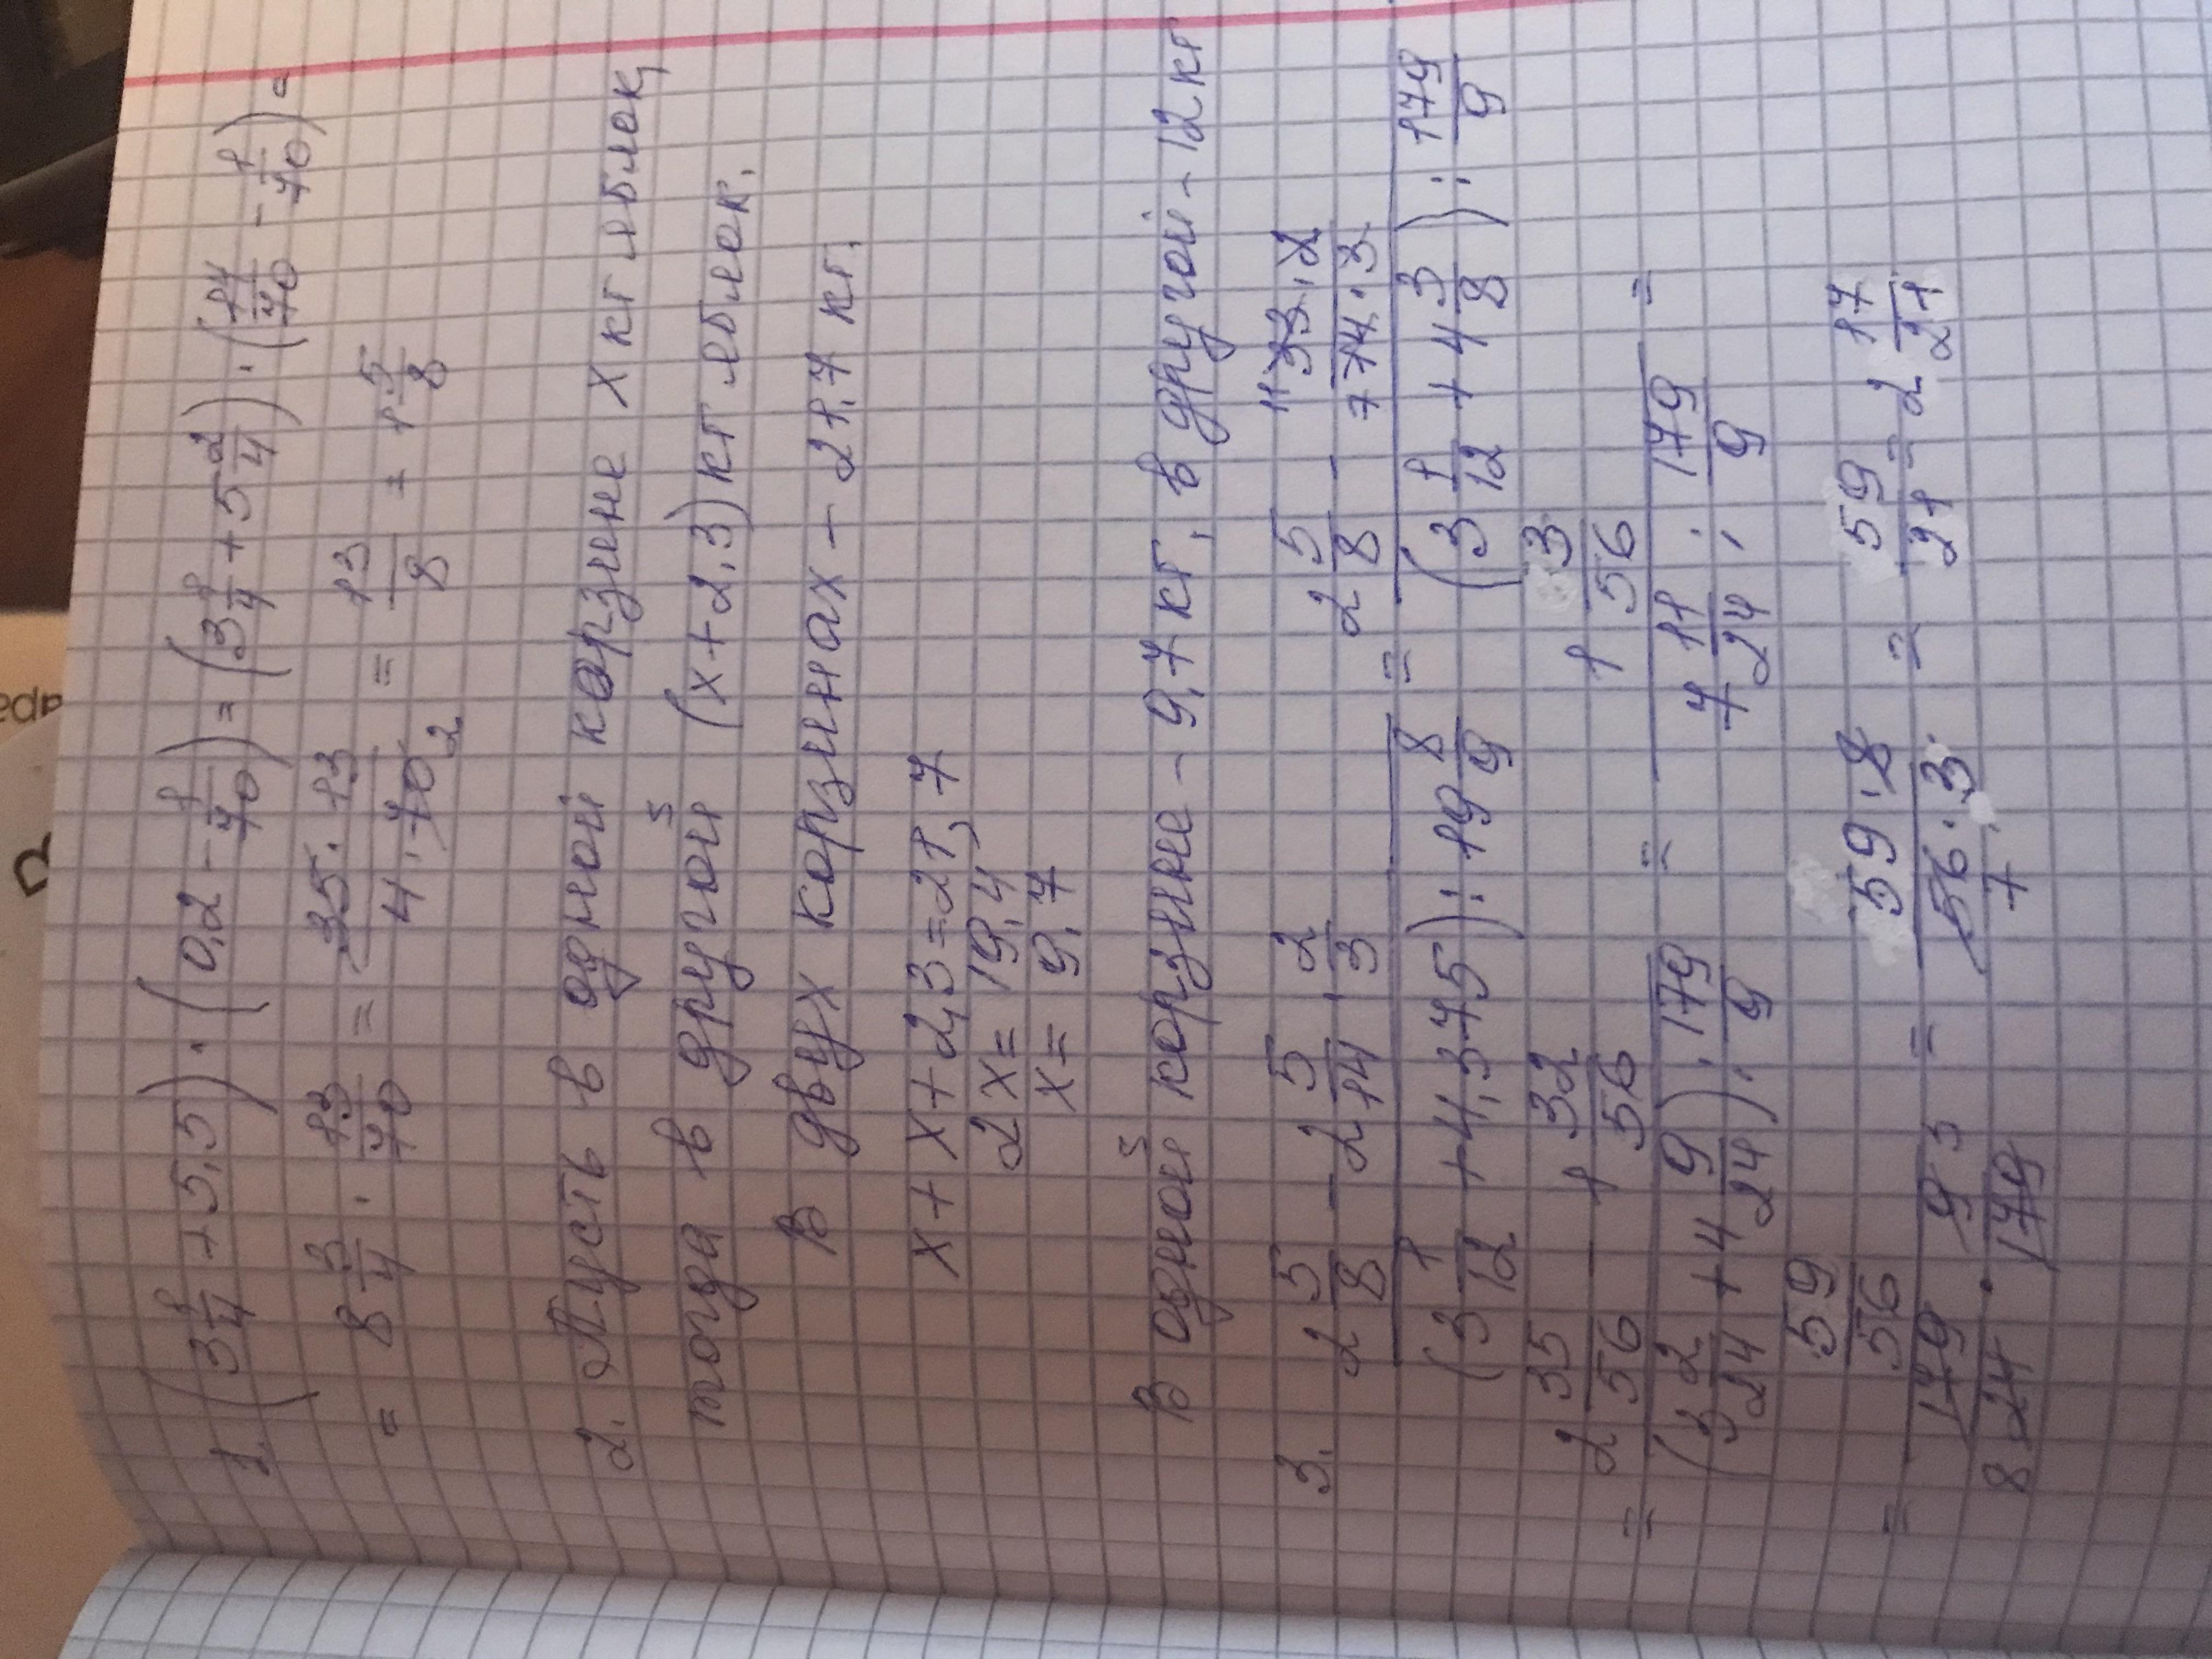 1. (3 1/4 + 5,5) · (0,2 - 1/70) = (3 1/4 + 5 2/4) · (14/70 - 1/70) =
= 8 3/4 · 13/70 = 35 · 13 / 4 · 70 2 = 13/8 = 1 5/8
2. Пусть в одной корзине x кг яблок,
тогда в другой (x + 2,3) кг яблок.
В двух корзинах - 21,7 кг.
x + x + 2,3 = 21,7
2x = 19,4
x = 9,7
В одной корзине - 9,7 кг, в другой - 12 кг
3. 2 5/8 - 2 5/14 · 2/3 / (3 1/12 + 4,375) : 19 8/9 = 2 5/8 - 11 33 · 2 / 7 14 · 3 / (3 1/12 + 4 3/8) : 179/9
= 2 35/56 - 1 32/56 / (3 2/24 + 4 9/24) : 179/9 = 1 3/56 / 7 11/24 : 179/9 =
= 59/56 / 179/8 24 · 9 3/179 = 59 · 8 / 56 7 · 3 = 59/21 = 2 17/21